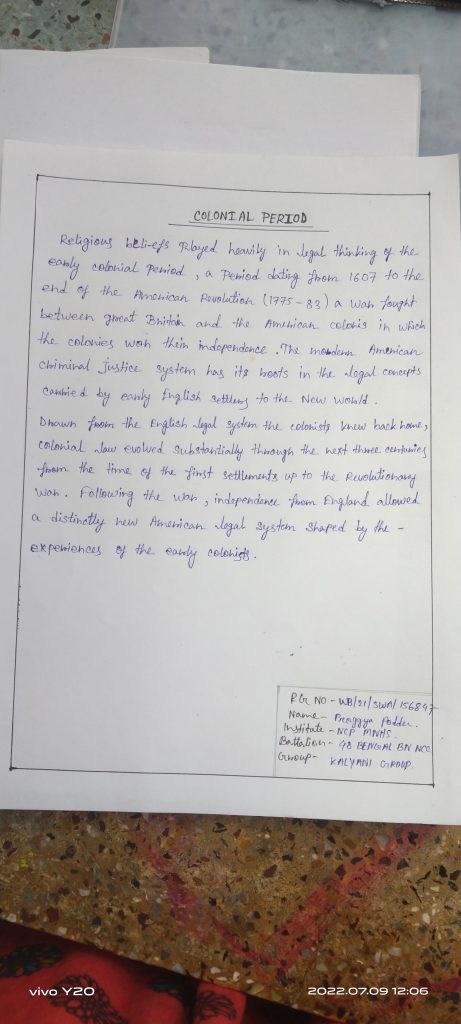 COLONIAL PERIOD
Religious beli-efs Played heavily in legal thinking of the
early colonial Period , a Period dating from 1607 to the
end of the American Revolution (1775-83) a war fought
between great Britain and the American colonis in which
the colonies won their independence . The mordern American
Criminal Justice system has its roots in the legal concepts
carried by early English settlers to the New World .
Drawn from the English legal system the colonists knew back home,
colonial law evolved substantially through the next three centuries
from the time of the first settlements up to the Revolutionary
war . Following the war , independence from England allowed
a distinctly new American legal system shaped by the -
experiences of the early colonists .
RG NO - WB/21/SWA/156897
Name - Praggya Podder .
Institute - NCP MNHS .
Battalion - 98 BENGAL BN NCC
Group - KALYANI GROUP.
vivo Y20
2022.07.09 12:06